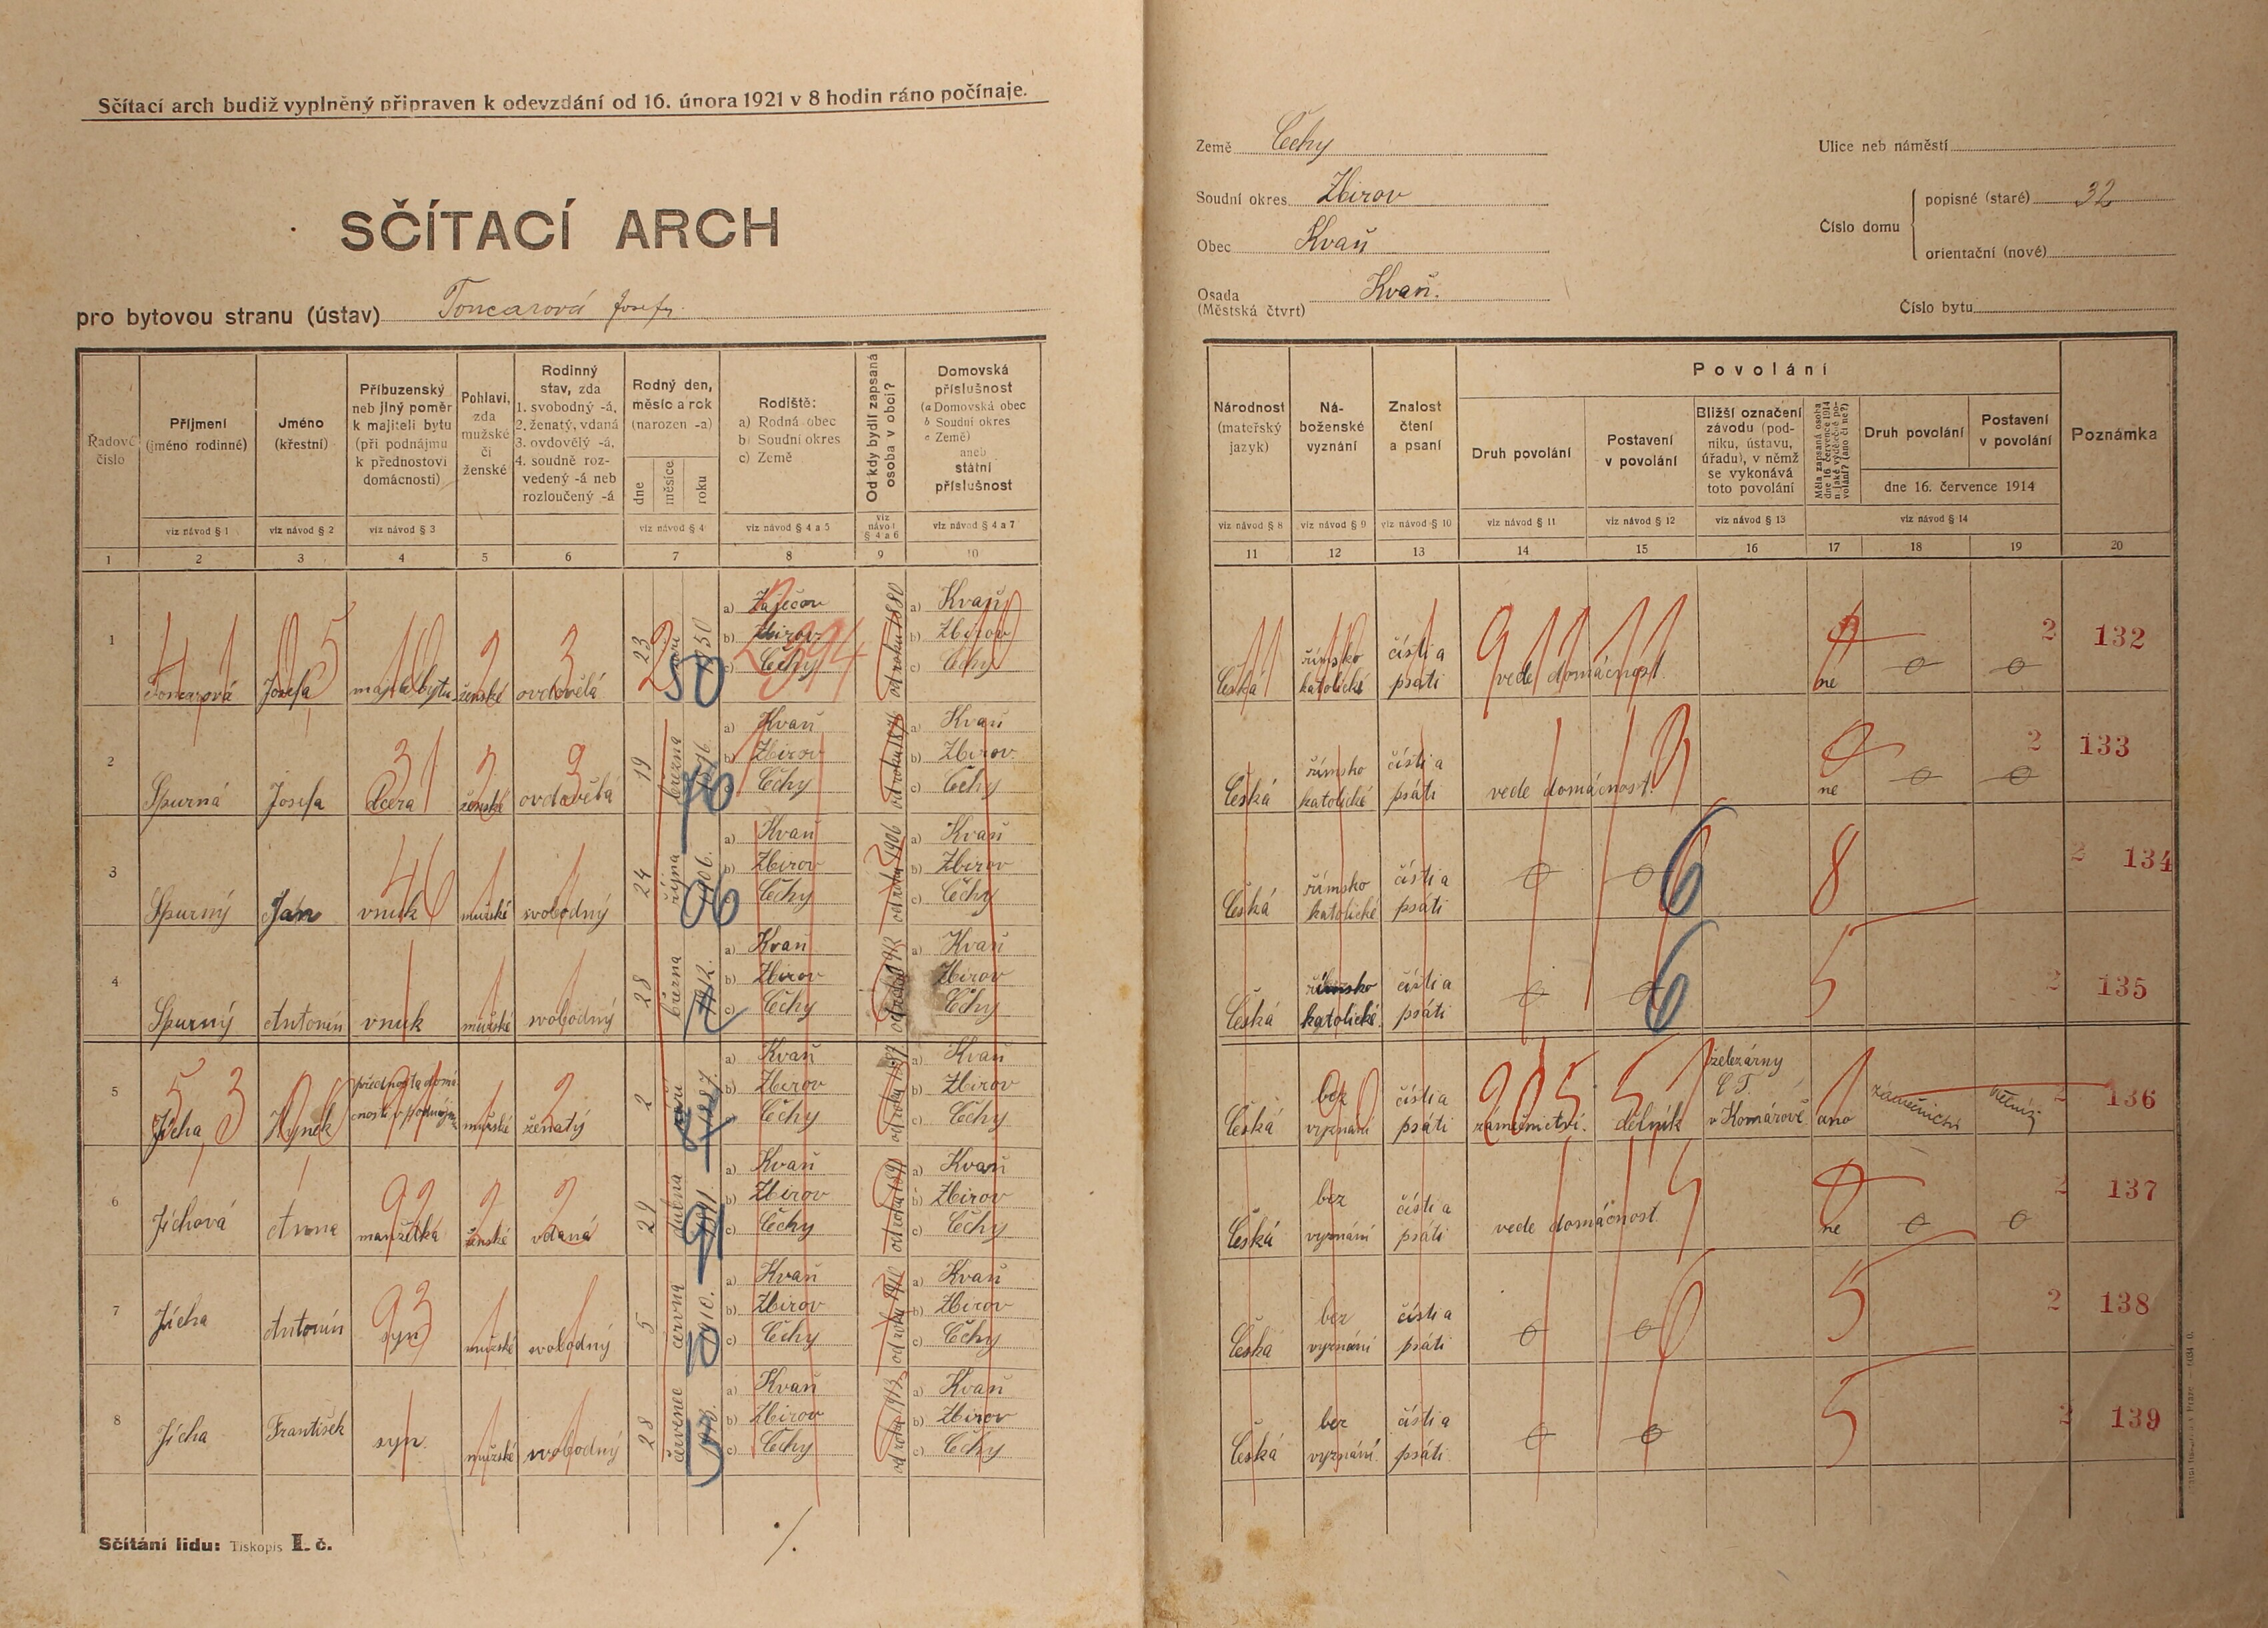 Sčítací arch budiž vyplněný připraven k odevzdání od 16. února 1921 v 8 hodin ráno počínaje.
SČÍTACÍ ARCH
pro bytovou stranu (ústav) Toncarová Josefa
Země Čechy
Soudní okres Zbirov
Obec Kvaň
Osada (Městská čtvrt) Kvaň.
Ulice neb náměstí
Číslo domu
popisné (staré) 32
orientační (nové)
Číslo bytu
Řadové číslo
Příjmení (jméno rodinné)
viz návod § 1
Jméno (křestní)
viz návod § 2
Příbuzenský neb jiný poměr k majiteli bytu (při podnájmu k přednostovi domácnosti)
viz návod § 3
Pohlaví, zda mužské či ženské
Rodinný stav, zda 1. svobodný -á, 2. ženatý, vdaná 3. ovdovělý -á, 4. soudně rozvedený -á neb rozloučený -á
Rodný den, měsíc a rok (narozen -a)
dne měsíce roku
viz návod § 4
Rodiště:
a) Rodná obec
b) Soudní okres
c) Země
viz návod § 4 a 5
Od kdy bydlí zapsaná osoba v obci?
viz návod § 4 a 6
Domovská příslušnost
(a Domovská obec
b Soudní okres
c Země)
aneb
státní příslušnost
viz návod § 4 a 7
Národnost (mateřský jazyk)
viz návod § 8
Náboženské vyznání
viz návod § 9
Znalost čtení a psaní
viz návod § 10
Povolání
Druh povolání
viz návod § 11
Postavení v povolání
viz návod § 12
Bližší označení závodu (podniku, ústavu, úřadu), v němž se vykonává toto povolání
viz návod § 13
Měla zapsaná osoba dne 16. července 1914 n. jaké výdělečné povolání? (ano či ne?)
Druh povolání
Postavení v povolání
dne 16. července 1914
viz návod § 14
Poznámka
1 2 3 4 5 6 7 8 9 10 11 12 13 14 15 16 17 18 19 20
1 Toncarová Josefa majit. bytu ženské ovdovělá 23 50 a) Zaječov b) Zbirov c) Čechy od roku 1880 a) Kvaň b) Zbirov c) Čechy česká římsko katolické čísti a psáti vede domácnost. ne 2 132
2 Spurná Josefa dcera ženské ovdovělá 19 března 76 a) Kvaň b) Zbirov c) Čechy od roku 1876 a) Kvaň b) Zbirov c) Čechy česká římsko katolické čísti a psáti vede domácnost. ne 2 133
3 Spurný Jan vnuk mužské svobodný 24 října 1906. 06 a) Kvaň b) Zbirov c) Čechy od roku 1906 a) Kvaň b) Zbirov c) Čechy česká římsko katolické čísti a psáti 6 8 2 134
4 Spurný Antonín vnuk mužské svobodný 28 března 1912. a) Kvaň b) Zbirov c) Čechy od roku 1912 a) Kvaň b) Zbirov c) Čechy česká římsko katolické čísti a psáti 6 5 2 135
5 Jícha Hynek přednosta domácnosti v podnájmu mužské ženatý 2 září 1887. a) Kvaň b) Zbirov c) Čechy od roku 1887 a) Kvaň b) Zbirov c) Čechy česká bez vyznání čísti a psáti zámečnictví. dělník železárny C. T. v Komárově ano zámečnictví 2 136
6 Jíchová Anna manželka ženské vdaná 29 1891. 91 a) Kvaň b) Zbirov c) Čechy od roku 1891 a) Kvaň b) Zbirov c) Čechy česká bez vyznání čísti a psáti vede domácnost. ne 2 137
7 Jícha Antonín syn mužské svobodný 5 června 1910. 10 a) Kvaň b) Zbirov c) Čechy od roku 1910 a) Kvaň b) Zbirov c) Čechy česká bez vyznání čísti a psáti 5 2 138
8 Jícha František syn. mužské svobodný 28 červenec 1913. a) Kvaň b) Zbirov c) Čechy od roku 1913 a) Kvaň b) Zbirov c) Čechy česká bez vyznání čísti a psáti 5 2 139
Sčítání lidu: Tiskopis I. č.